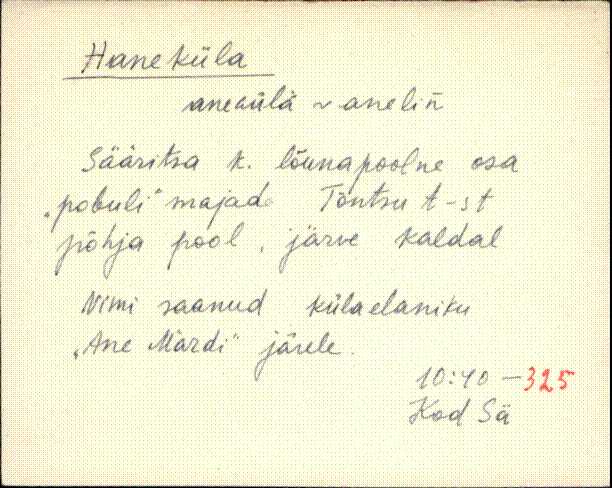 Haneküla
aneküla ~ aneliñ
Sääritsa k. lõunapoolne osa
"pobuli" majad Tõntsu t-st
põhja pool, järve kaldal
Nimi saanud külaelaniku
"Ane Märdi" järele.
10:40 – 325
Kod Sä